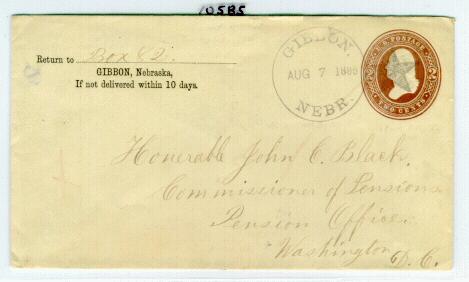 10585
Return to Box 82.
GIBBON, Nebraska,
If not delivered within 10 days.
GIBBON.
AUG 7 1886
NEBR.
U.S. POSTAGE
2 2
TWO CENTS
Honerable John C. Black.
Commissioner of Pensions
Pension Office.
Washington D. C.